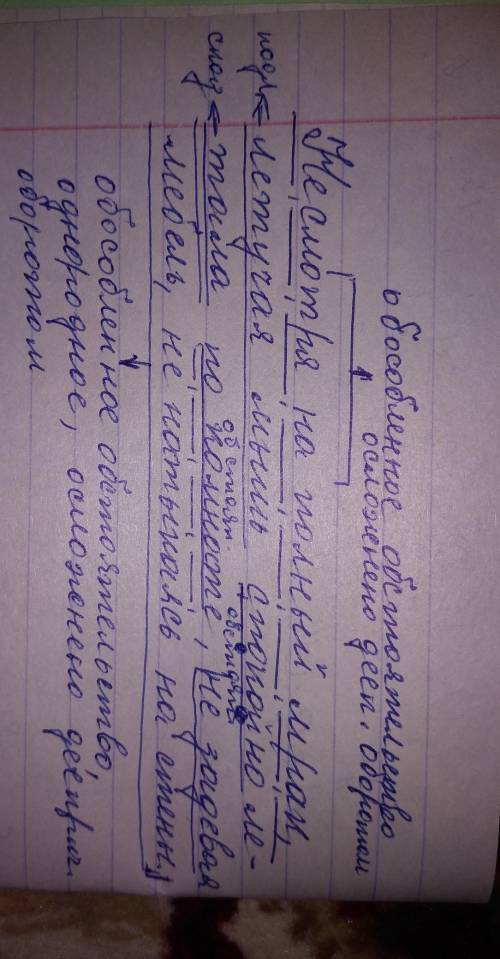 обособленное обстоятельство
осложнено дееп. оборотом
Несмотря на полный мрак,
подл летучая мышь спокойно ле-
обстоят. обстоят.
сказ тала по комнате, не задевая
мебель, не натыкаясь на стены.
обособленное обстоятельство,
однородное, осложнено дееприч.
оборотом